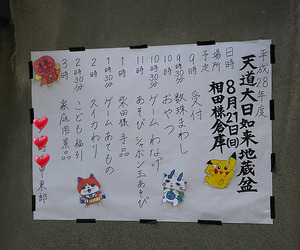 平成28年度
天道大日如来地蔵盆
日時 8月21日(日)
場所 相田様倉庫
予定
9時 受付
9時30分 数珠まわし
10時 おやつ
10時30分 ゲーム わなげ
11時 あそび シャボン玉あそび
1時 柴田様 手品
1時30分 ゲーム あてもの
2時 スイカわり
2時30分 こども福引
3時 家庭用景品